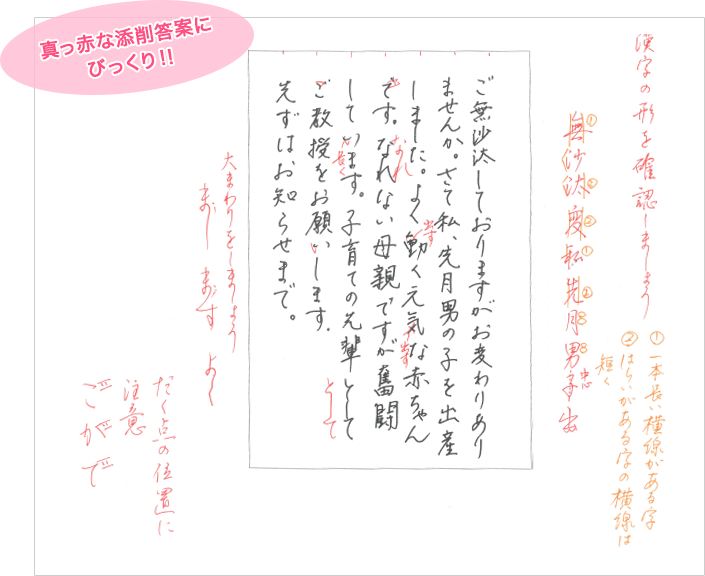 真っ赤な添削答案に
びっくり!!
漢字の形を確認しましょう
① 一本長い横線がある字
② はらいがある字の横線は
短く
無沙汰変私先月男子出
中心
ご無沙汰しておりますがお変わりあり
ませんか。さて私、先月男の子を出産
しました。よく動く元気な赤ちゃん
です。なれない母親ですが奮闘
しています。子育ての先輩として
ご教授をお願いします。
先ずはお知らせまで。
出す
出す
なれ
長く
として
大まわりをしましょう
まし ます よく
だく点の位置に
注意
ごがで